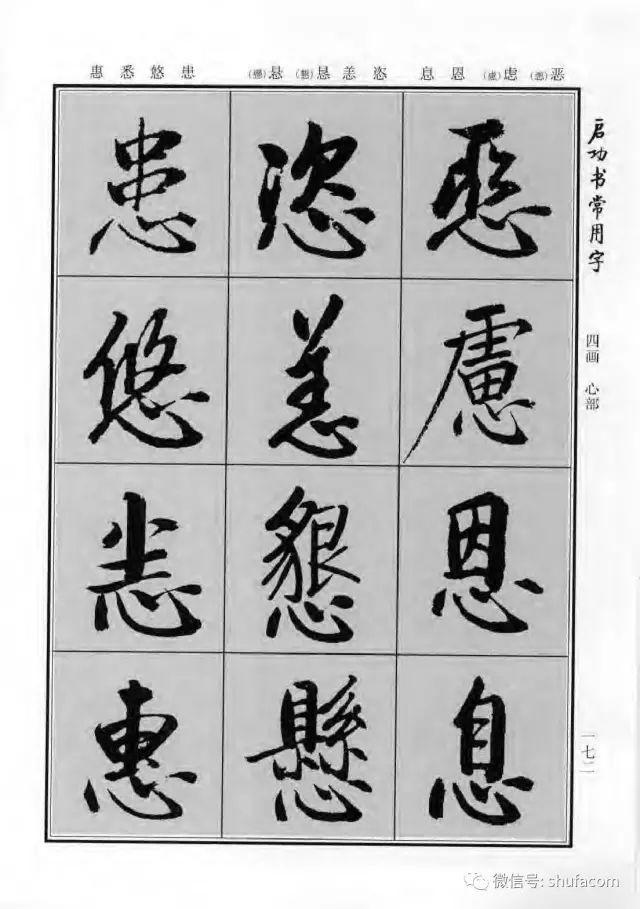 启功书常用字
四画 心部
一七二
恶(惡) 虑(慮) 恩 息 恣 恙 恳(懇) 悬(懸) 患 悠 悉 惠
惡慮恩息
恣恙懇懸
患悠悉惠
微信号: shufacom